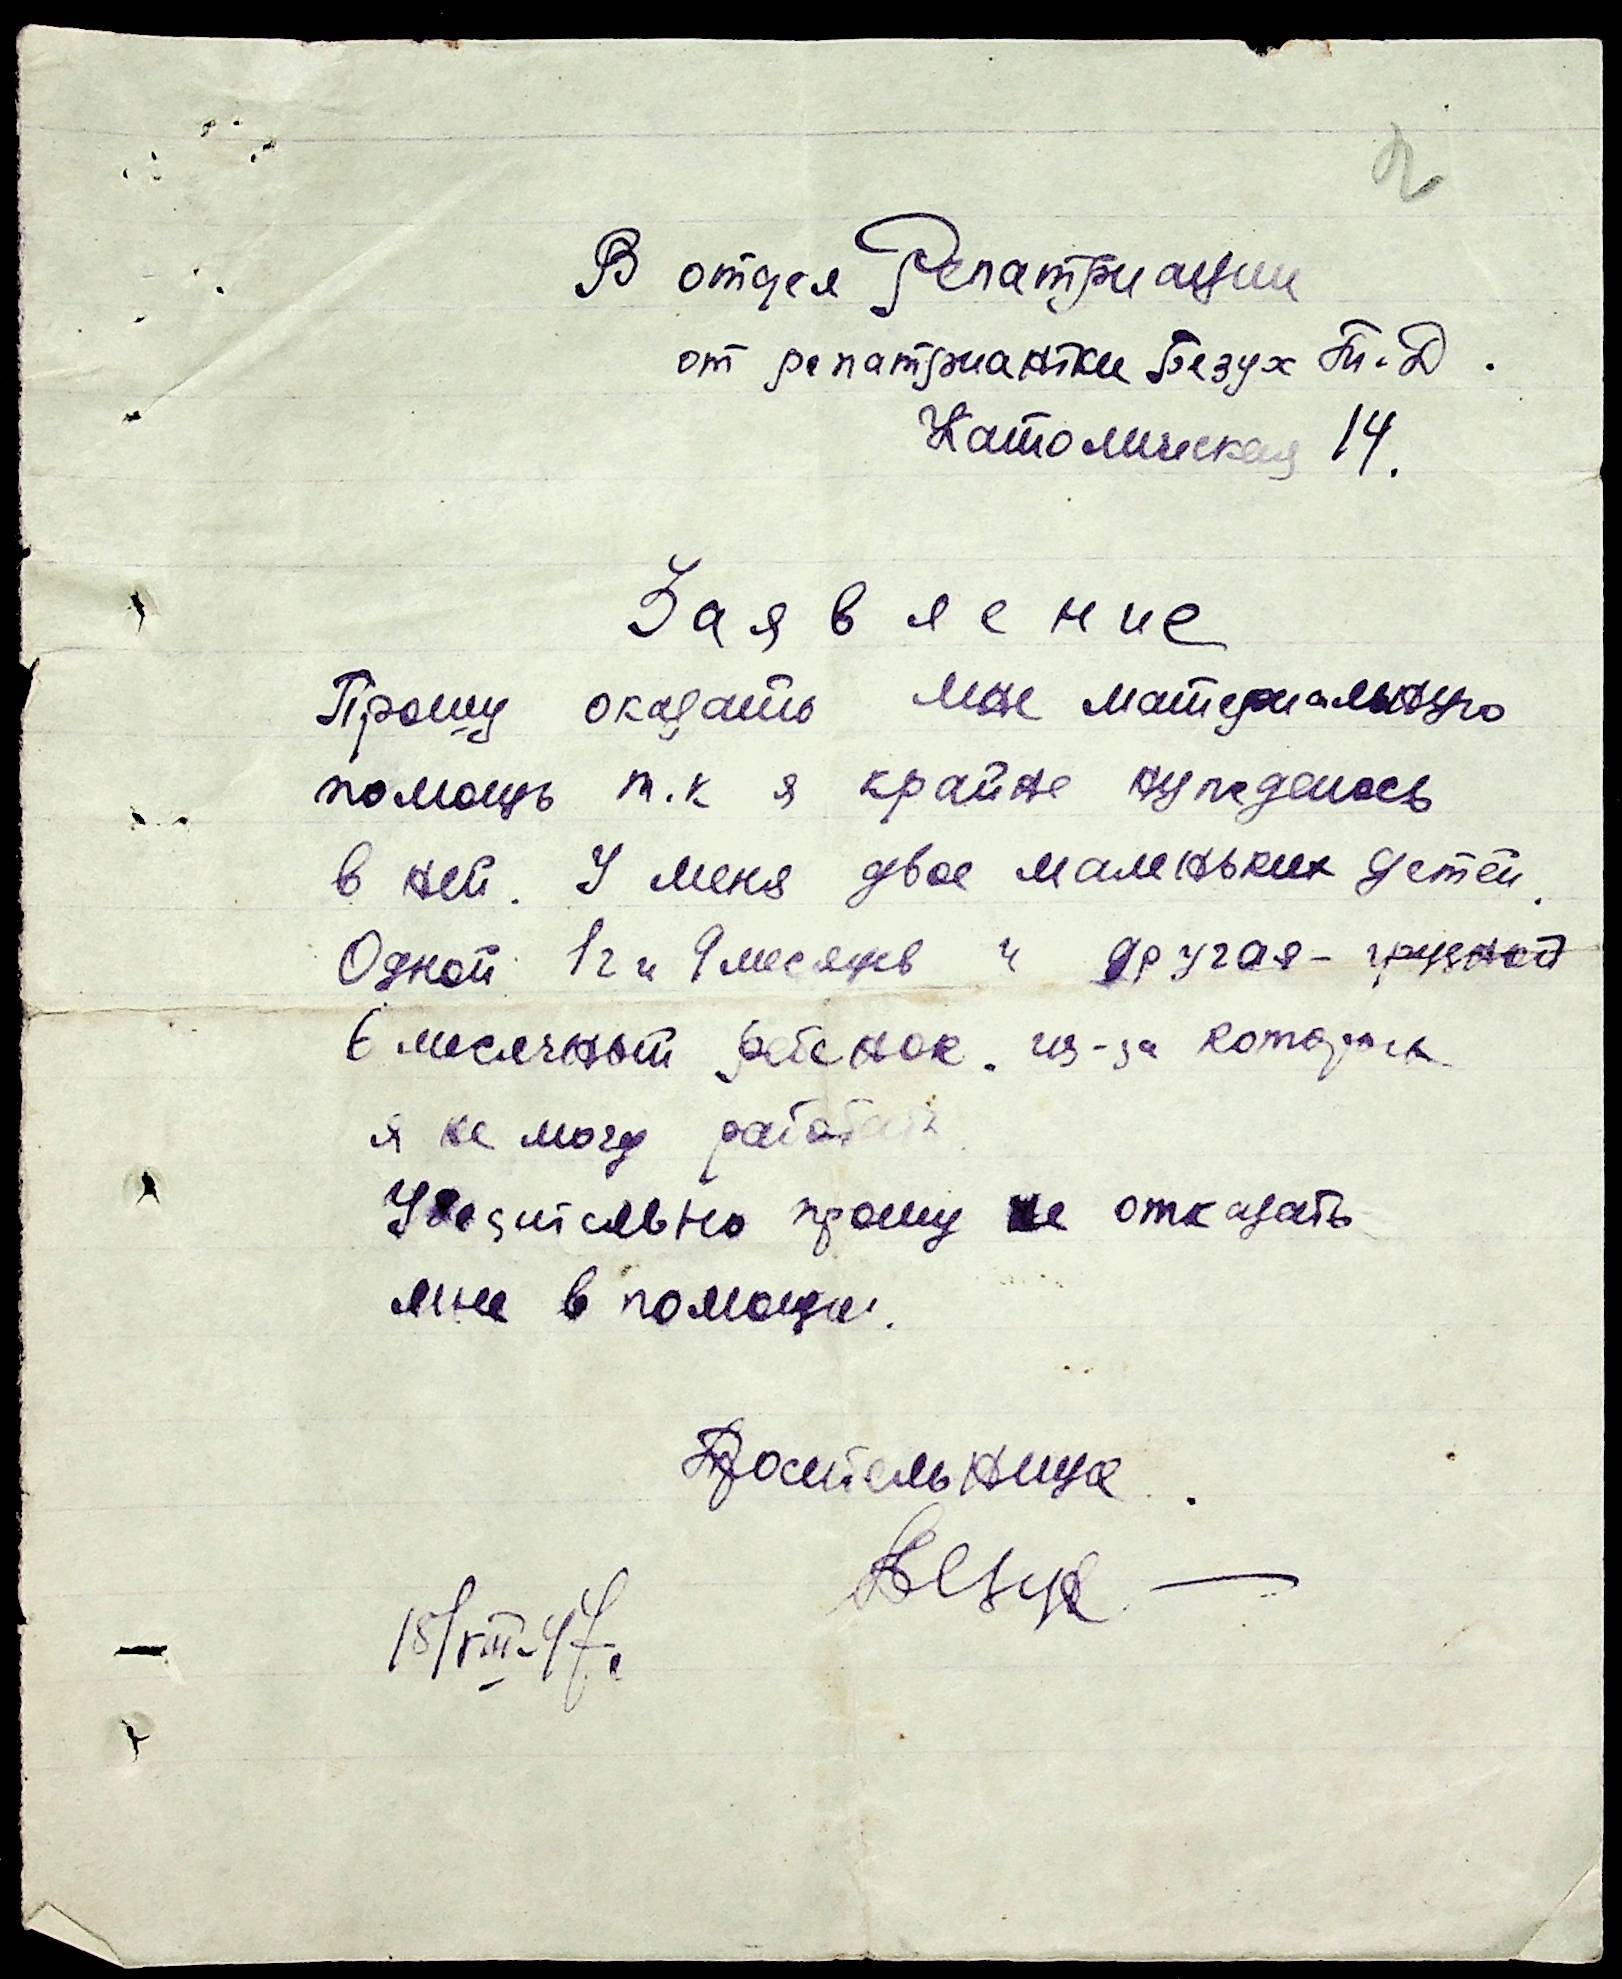 2
В отдел Репатриации
от репатриантки Безух Т.Д.
Католическая 14.
Заявление
Прошу оказать мне материальную
помощь т.к я крайне нуждаюсь
в ней. У меня двое маленьких детей.
Одной 1г и 9 месяцев и другая - грудной
6 месячный ребенок. из-за которых
я не могу работать.
Убедительно прошу не отказать
мне в помощи.
Просительница.
Безух
18/VIII-47г.